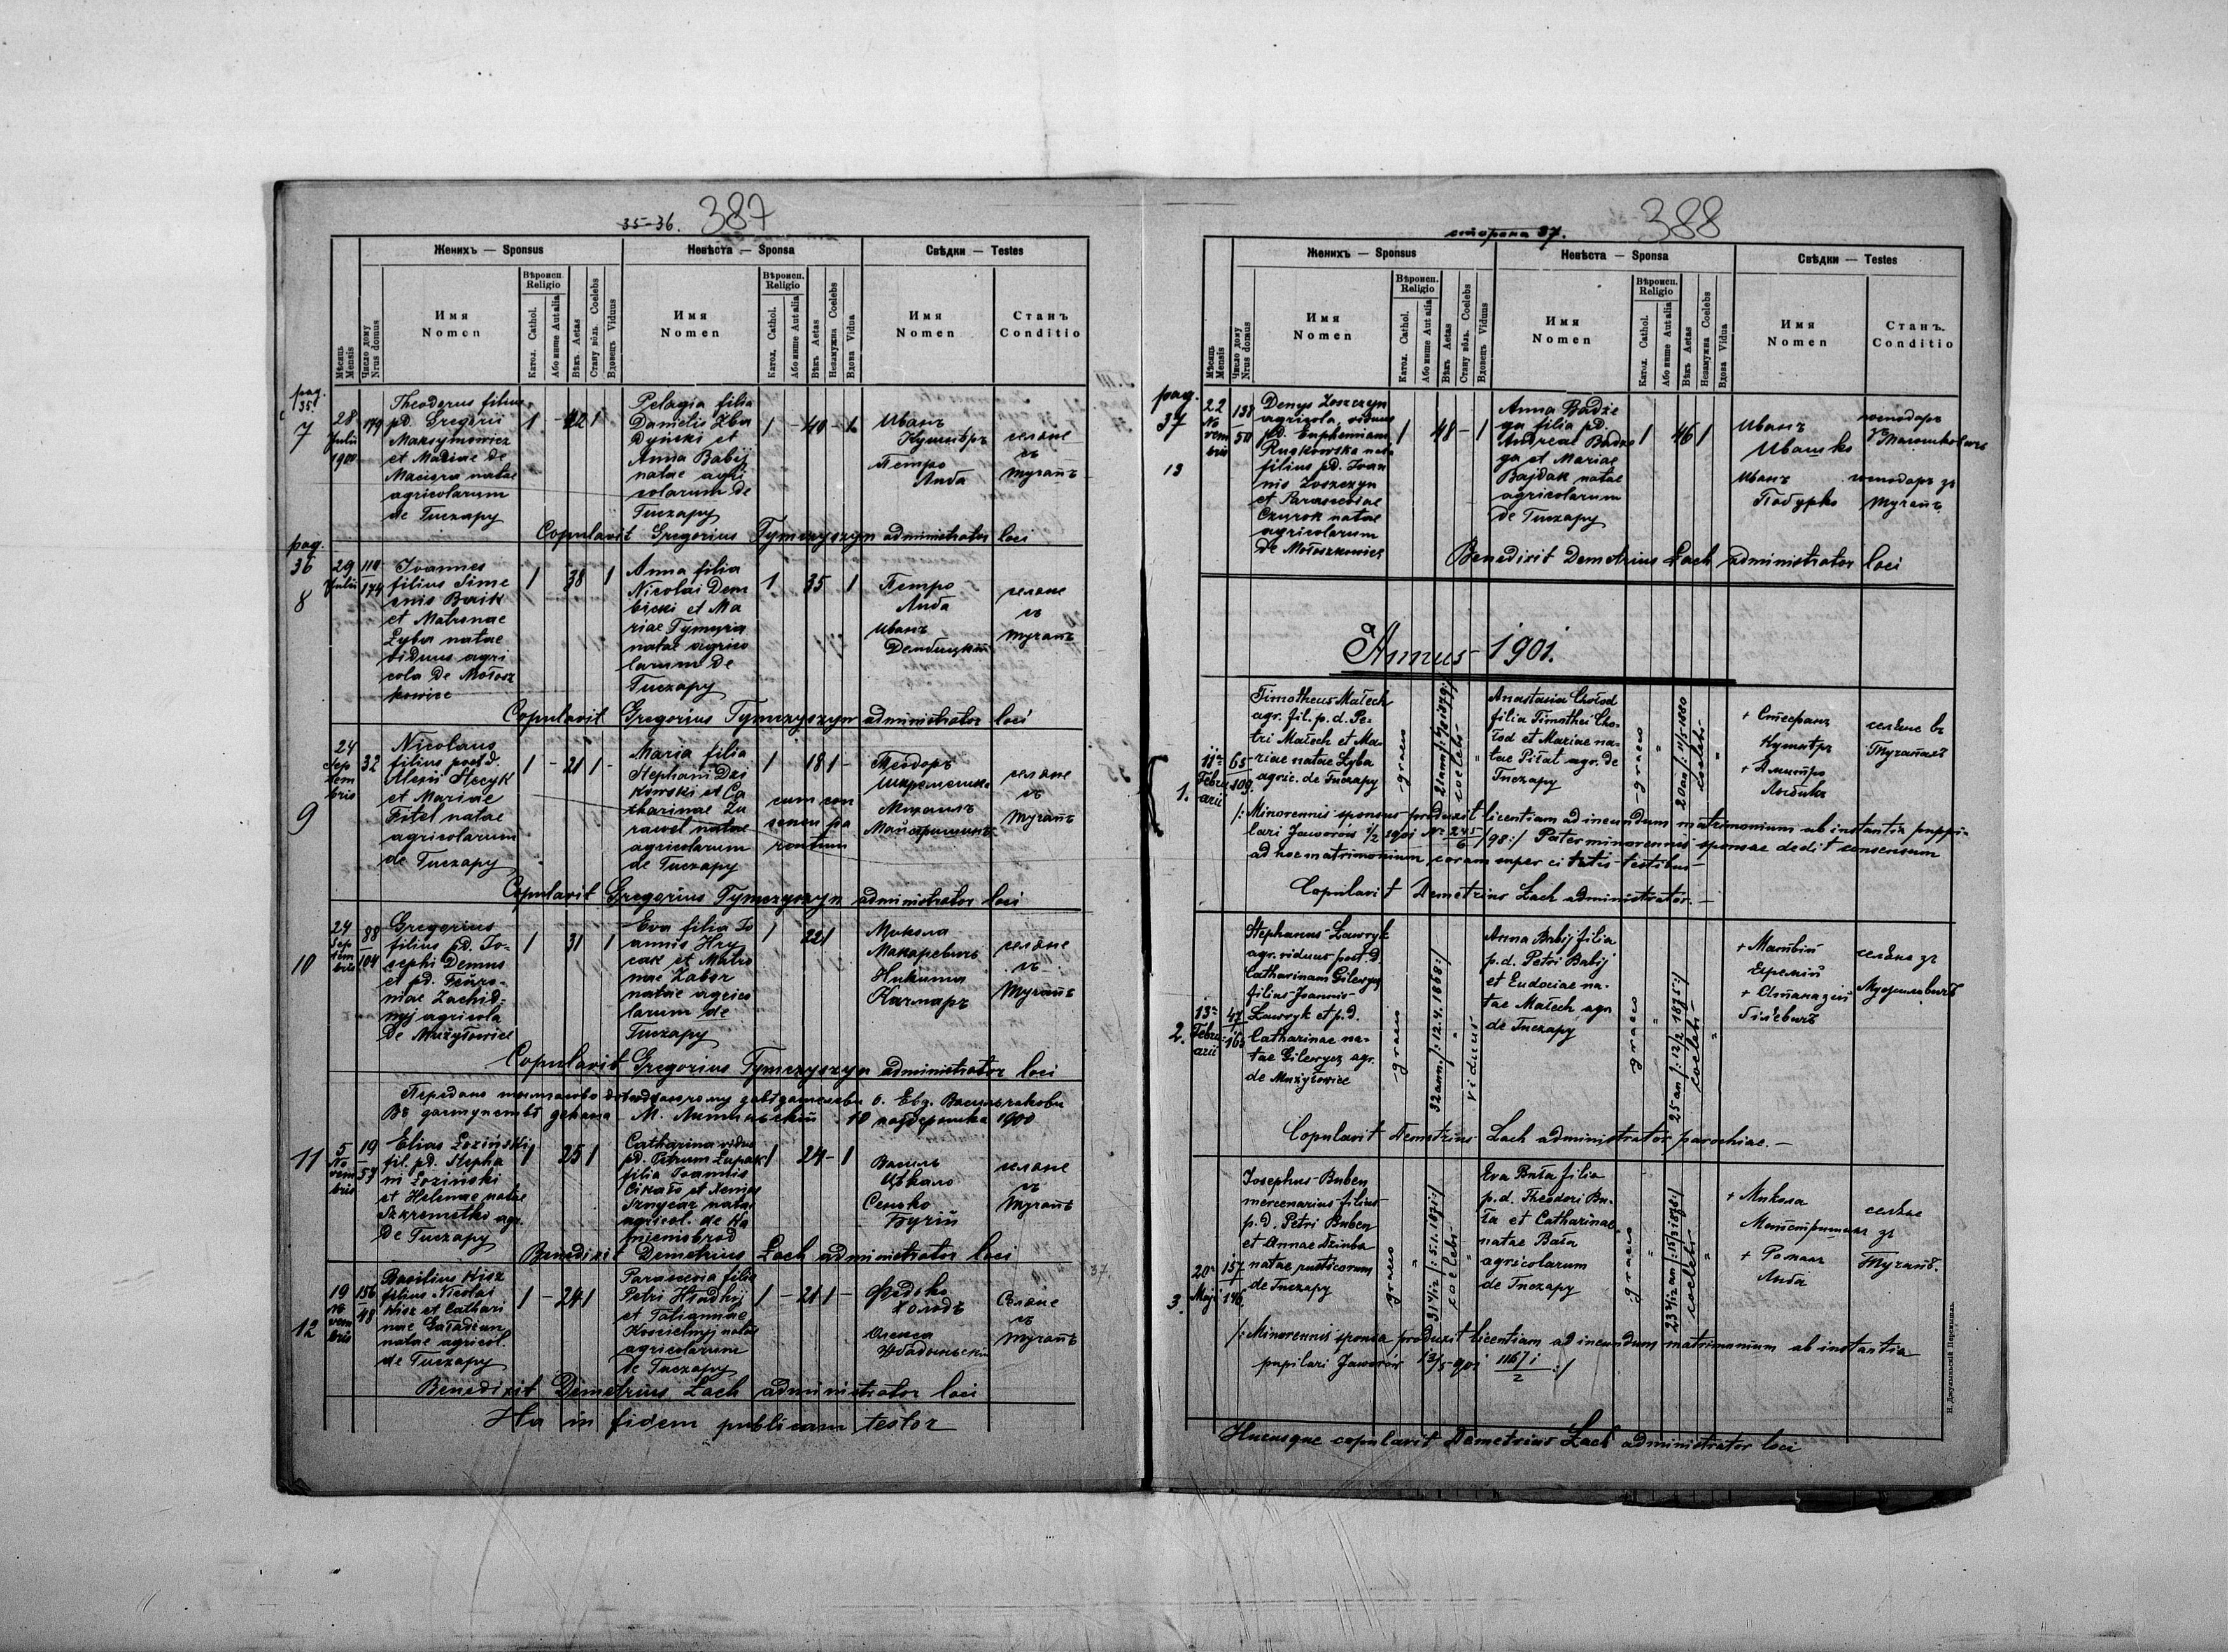 35-36. 387
Женихъ — Sponsus
Невѣста — Sponsa
Свѣдки — Testes
Мѣсяць Mensis
Число дому Nrus domus
Имя Nomen
Вѣроисп. Religio
Катол. Cathol.
Або инше Aut alia
Вѣкъ Aetas
Стану вôль. Coelebs
Вдовець Viduus
Имя Nomen
Вѣроисп. Religio
Катол. Cathol.
Або инше Aut alia
Вѣкъ Aetas
Незамужна Coelebs
Вдова Vidua
Имя Nomen
Станъ Conditio
pag. 35.
7
28 Julii 1900
179
Theodorus filius
pd. Gregorii
Maksymowicz
et Mariae de
Maciura natae
agricolarum
de Tuczapy
1 - 42 1
Pelagia filia
Danielis Zba
dyński et
Anna Babij
natae agri
colarum de
Tuczapy
1 - 40 - 1
Иванъ
Кушнѣръ
Петро
Либа
селяне
зъ
Тучапъ
Copulavit Gregorius Tymczyszyn administrator loci
pag. 36
8
29 Julii
110
174
Joannes
filius Sime
onis Bazik
et Matronae
Zyba natae
viduus agri
cola de Mołosz
kowice
1 38 1
Anna filia
Nicolai Dem
bicki et Ma
riae Tymyra
natae agrico
larum de
Tuczapy
1 35 1
Петро
Либа
Иванъ
Дембицкій
селяне
зъ
Тучапъ
Copulavit Gregorius Tymczyszyn administrator loci
9
24 Sep
tem
bris
32
Nicolaus
filius post d.
Alexii Stecyk
et Mariae
Fitel natae
agricolarum
de Tuczapy
1 - 21 1 -
Maria filia
Stephani Dzi
kowski et Ca
tharinae Zu
rawel natae
agricolarum
de Tuczapy
1 18 1 -
cum con
sensu pa
rentum
Теодоръ
Шкреметко
Михаилъ
селяне
зъ
Тучапъ
Copulavit Gregorius Tymczyszyn administrator loci
10
24 Sep
tem
bris
88
104
Gregorius
filius pd. Jo-
sephi Demus
et pd. Fewro-
niae Zachid-
nyj agricola
de Mużyłowice
1 31 1
Eva filia Jo
annis Hry
cak et Matro
nae Zabor
natae agrico
larum de
Tuczapy
1 22 1
Микола
Макаревичъ
Никита
Качмаръ
селяне
зъ
Тучапъ
Copulavit Gregorius Tymczyszyn administrator loci
Передано
М. 1900
11
5 No
vem
bris
19
57
Elias Łoziński
fil. pd. Stepha
ni Łoziński
et Helenae natae
Szkremetko agr.
de Tuczapy
1 25 1
Catharina vidua
pd. Petrum Łapak
filia Joannis
Cikało et Xeniae
natae
agricol. de Ka
mienobrod
1 24 - 1
Василь
Цѣкало
Сенько
Бучій
селяне
зъ
Тучапъ
Benedixit Demetrius Łach administrator loci
12
19 No
vem
bris
156
48
Basilius Kisz
filius Nicolai
Kisz et Cathari
nae Gaładian
natae agricol.
de Tuczapy
1 - 24 1
Parascevia filia
Petri Hładkij
et Tatiannae
Koscielnyj natae
agricolarum
de Tuczapy
1 - 21 1 -
Федько
Холодъ
Олекса
Збадыньскій
Селяне
зъ
Тучапъ
Benedixit Demetrius Łach administrator loci
Ita in fidem publicam testor
сторона 37. 388
Женихъ — Sponsus
Невѣста — Sponsa
Свѣдки — Testes
Мѣсяць Mensis
Число дому Nrus domus
Имя Nomen
Вѣроисп. Religio
Катол. Cathol.
Або инше Aut alia
Вѣкъ Aetas
Стану вôль. Coelebs
Вдовець Viduus
Имя Nomen
Вѣроисп. Religio
Катол. Cathol.
Або инше Aut alia
Вѣкъ Aetas
Незамужна Coelebs
Вдова Vidua
Имя Nomen
Станъ. Conditio
pag. 37
13
22 No
vem
bris
138
50
Denys Łoszczyn
agricola, viduus
pd. Euphemiam
Ruskowska nat.
filius pd. Joan
nis Łoszczyn
et Parasceviae
Czurok natae
agricolarum
de Mołoszkowice
1 48 - 1
Anna Badze
ga filia pd.
Andreae Badze
ga et Mariae
Bajdak natae
agricolarum
de Tuczapy
1 46 1
Иванъ
Ивашко
Иванъ
Побурко
господарь
господарь зъ
Тучапъ
Benedixit Demetrius Łach administrator loci
Annus 1901.
1.
11a Febru
arii
65
109.
Timotheus Małech
agr. fil. p. d. Pe-
tri Małech et Ma-
riae natae Zyba
agric. de Tuczapy
graeco
coelebs
Anastasia Chołod
filia Timothei Cho-
łod et Mariae na-
tae Pitał agr. de
Tuczapy
graeco
20 an /: 11/5 1880
coelebs
+ Стефанъ
Кушнѣръ
+ Дмитро
селяне въ
Тучапахъ
/: Minorennis sponsus produxit licentiam ad ineundum matrimonium ab instantia puppi-
lari Jaworów 1/2 1901 Nr. 245/6 /98:/ Pater minorennis sponsae dedit consensum
ad hoc matrimonium coram super citatis testibus
Copulavit Demetrius Łach administrator. —
2.
13a Febru
arii
47
163
Stephanus Ławryk
agr. viduus post. d.
Catharinam Gilewycz
filius Joannis
Ławryk et p. d.
Catharinae na-
tae Gilewycz agr.
de Mużyłowice
graeco
32 ann. /: 12.4. 1868:/
viduus
Anna Babij filia
p. d. Petri Babij
et Eudociae na-
tae Małech agr.
de Tuczapy
graeco
25 an /: 12/2 1875:/
coelebs
+ Матвій
Еремій
+ Атаназій
Гілевичъ
селяне зъ
Мужиловичъ
Copulavit Demetrius Łach administrator parochiae. —
3.
20a Maji
157
146
Josephus Buben
mercenarius filius
p. d. Petri Buben
et Annae Dziuba
natae rusticorum
de Tuczapy
graeco
31 4/12 /: 5.1. 1871:/
coelebs
Eva Buła filia
p. d. Theodori Bu-
ła et Catharinae
natae Bała
agricolarum
de Tuczapy
graeco
23 2/12 an /: 15/3 1878:/
coelebs
+ Микола
+ Романъ
Либа
селяне
зъ
Тучапъ.
/: Minorennis sponsa produxit licentiam ad ineundum matrimonium ab instantia
pupilari Jaworów 13/5 901 1167 1/2 :/
Hucusque copulavit Demetrius Łach administrator loci
Н. Джулыньскій Перемышль.